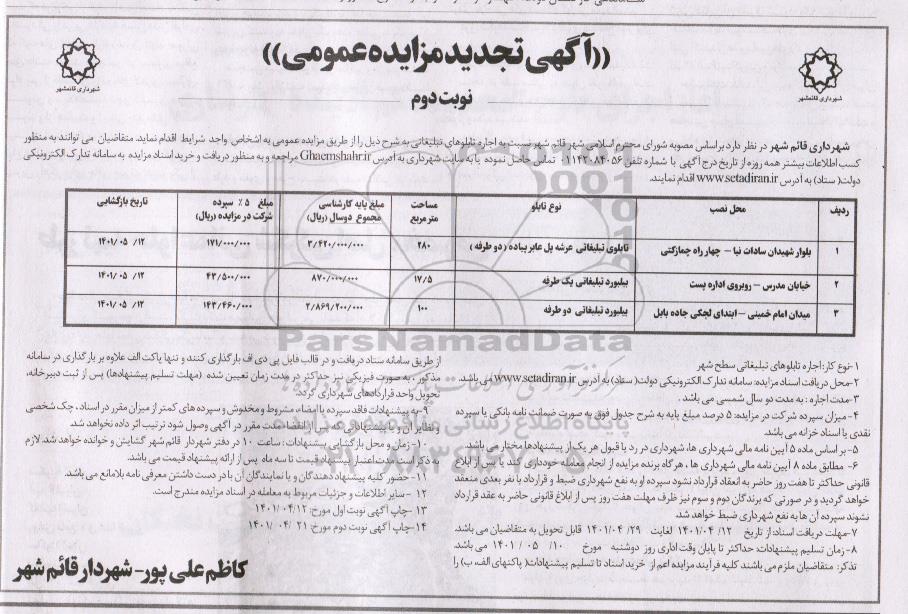 ((آگهی تجدید مزایده عمومی))
نوبت دوم
شهرداری قائمشهر
شهرداری قائمشهر
شهرداری قائم شهر در نظر دارد براساس مصوبه شورای محترم اسلامی شهر قائم شهر نسبت به اجاره تابلوهای تبلیغاتی به شرح ذیل را از طریق مزایده عمومی به اشخاص واجد شرایط اقدام نماید. متقاضیان می توانند به منظور
کسب اطلاعات بیشتر همه روزه از تاریخ درج آگهی با شماره تلفن ۰۱۱۴۲۰۸۴۰۵۶ تماس حاصل نموده یا به سایت شهرداری به آدرس Ghaemshahr.ir مراجعه و به منظور دریافت و خرید اسناد مزایده به سامانه تدارک الکترونیکی
دولت( ستاد) به آدرس www.setadiran.ir اقدام نمایند.
ردیف محل نصب نوع تابلو مساحت متر مربع مبلغ پایه کارشناسی مجموع دوسال (ریال) مبلغ ۵٪ سپرده شرکت در مزایده (ریال) تاریخ بازگشایی
۱ بلوار شهیدان سادات نیا – چهار راه چمازکتی تابلوی تبلیغاتی عرشه پل عابر پیاده ( دو طرفه ) ۲۸۰ ۳/۴۲۰/۰۰۰/۰۰۰ ۱۷۱/۰۰۰/۰۰۰ ۱۴۰۱/۰۵/۱۲
۲ خیابان مدرس – روبروی اداره پست بیلبورد تبلیغاتی یک طرفه ۱۷/۵ ۸۷۰/۰۰۰/۰۰۰ ۴۳/۵۰۰/۰۰۰ ۱۴۰۱/۰۵/۱۲
۳ میدان امام خمینی – ابتدای لچکی جاده بابل بیلبورد تبلیغاتی دو طرفه ۱۰۰ ۲/۸۶۹/۲۰۰/۰۰۰ ۱۴۳/۴۶۰/۰۰۰ ۱۴۰۱/۰۵/۱۲
ParsNamadData
۱-نوع کار: اجاره تابلوهای تبلیغاتی سطح شهر
۲-محل دریافت اسناد مزایده: سامانه تدارک الکترونیکی دولت( ستاد) به آدرس www.setadiran.ir می باشد.
۳-مدت اجاره : به مدت دو سال شمسی می باشد .
۴- میزان سپرده شرکت در مزایده: ۵ درصد مبلغ پایه به شرح جدول فوق به صورت ضمانت نامه بانکی یا سپرده
نقدی یا اسناد خزانه می باشد.
۵- بر اساس ماده ۵ آیین نامه مالی شهرداری ها، شهرداری در رد یا قبول هر یک از پیشنهادها مختار می باشد.
۶- مطابق ماده ۸ آیین نامه مالی شهرداری ها ، هر گاه برنده مزایده از انجام معامله خودداری کند یا پس از ابلاغ
قانونی حداکثر تا هفت روز حاضر به انعقاد قرارداد نشود سپرده او به نفع شهرداری ضبط و قرارداد با نفر بعدی منعقد
خواهد گردید و در صورتی که برندگان دوم و سوم نیز ظرف مهلت هفت روز پس از ابلاغ قانونی حاضر به عقد قرارداد
نشوند سپرده آن ها به نفع شهرداری ضبط خواهد شد.
۷-مهلت دریافت اسناد: از تاریخ ۱۴۰۱/۰۴/۱۲ لغایت ۱۴۰۱/۰۴/۲۹ قابل تحویل به متقاضیان می باشد.
۸- زمان تسلیم پیشنهادات: حداکثر تا پایان وقت اداری روز دوشنبه مورخ ۱۴۰۱/۰۵/۱۰ می باشد.
تذکر: متقاضیان ملزم می باشند کلیه فرآیند مزایده اعم از خرید اسناد تا تسلیم پیشنهادات( پاکتهای الف، ب) را
از طریق سامانه ستاد دریافت و در قالب فایل پی دی اف بارگذاری کنند و تنها پاکت الف علاوه بر بارگذاری در سامانه
مذکور ، به صورت فیزیکی نیز حداکثر در مدت زمان تعیین شده (مهلت تسلیم پیشنهادها) پس از ثبت دبیرخانه،
تحویل واحد قراردادهای شهرداری گردد.
۹-به پیشنهادات فاقد سپرده یا امضاء، مشروط و مخدوش و سپرده های کمتر از میزان مقرر در اسناد ، چک شخصی
و نظایر آن و یا پیشنهاداتی که پس از انقضاء مدت مقرر در آگهی وصول شود ترتیب اثر داده نخواهد شد.
۱۰-زمان و محل بازگشایی پیشنهادات : ساعت ۱۰ در دفتر شهردار قائم شهر گشایش و خوانده خواهد شد. لازم
به ذکر است مدت اعتبار پیشنهاد قیمت تا سه ماه پس از ارائه پیشنهاد قیمت می باشد.
۱۱-حضور کلیه پیشنهاد دهندگان و یا نمایندگان آن با در دست داشتن معرفی نامه بلامانع می باشد.
۱۲- سایر اطلاعات و جزئیات مربوط به معامله در اسناد مزایده مندرج است.
۱۳-چاپ آگهی نوبت اول مورخ: ۱۴۰۱/۰۴/۱۲
۱۴-چاپ آگهی نوبت دوم مورخ: ۱۴۰۱/۰۴/۲۱
کاظم علی پور- شهردار قائم شهر